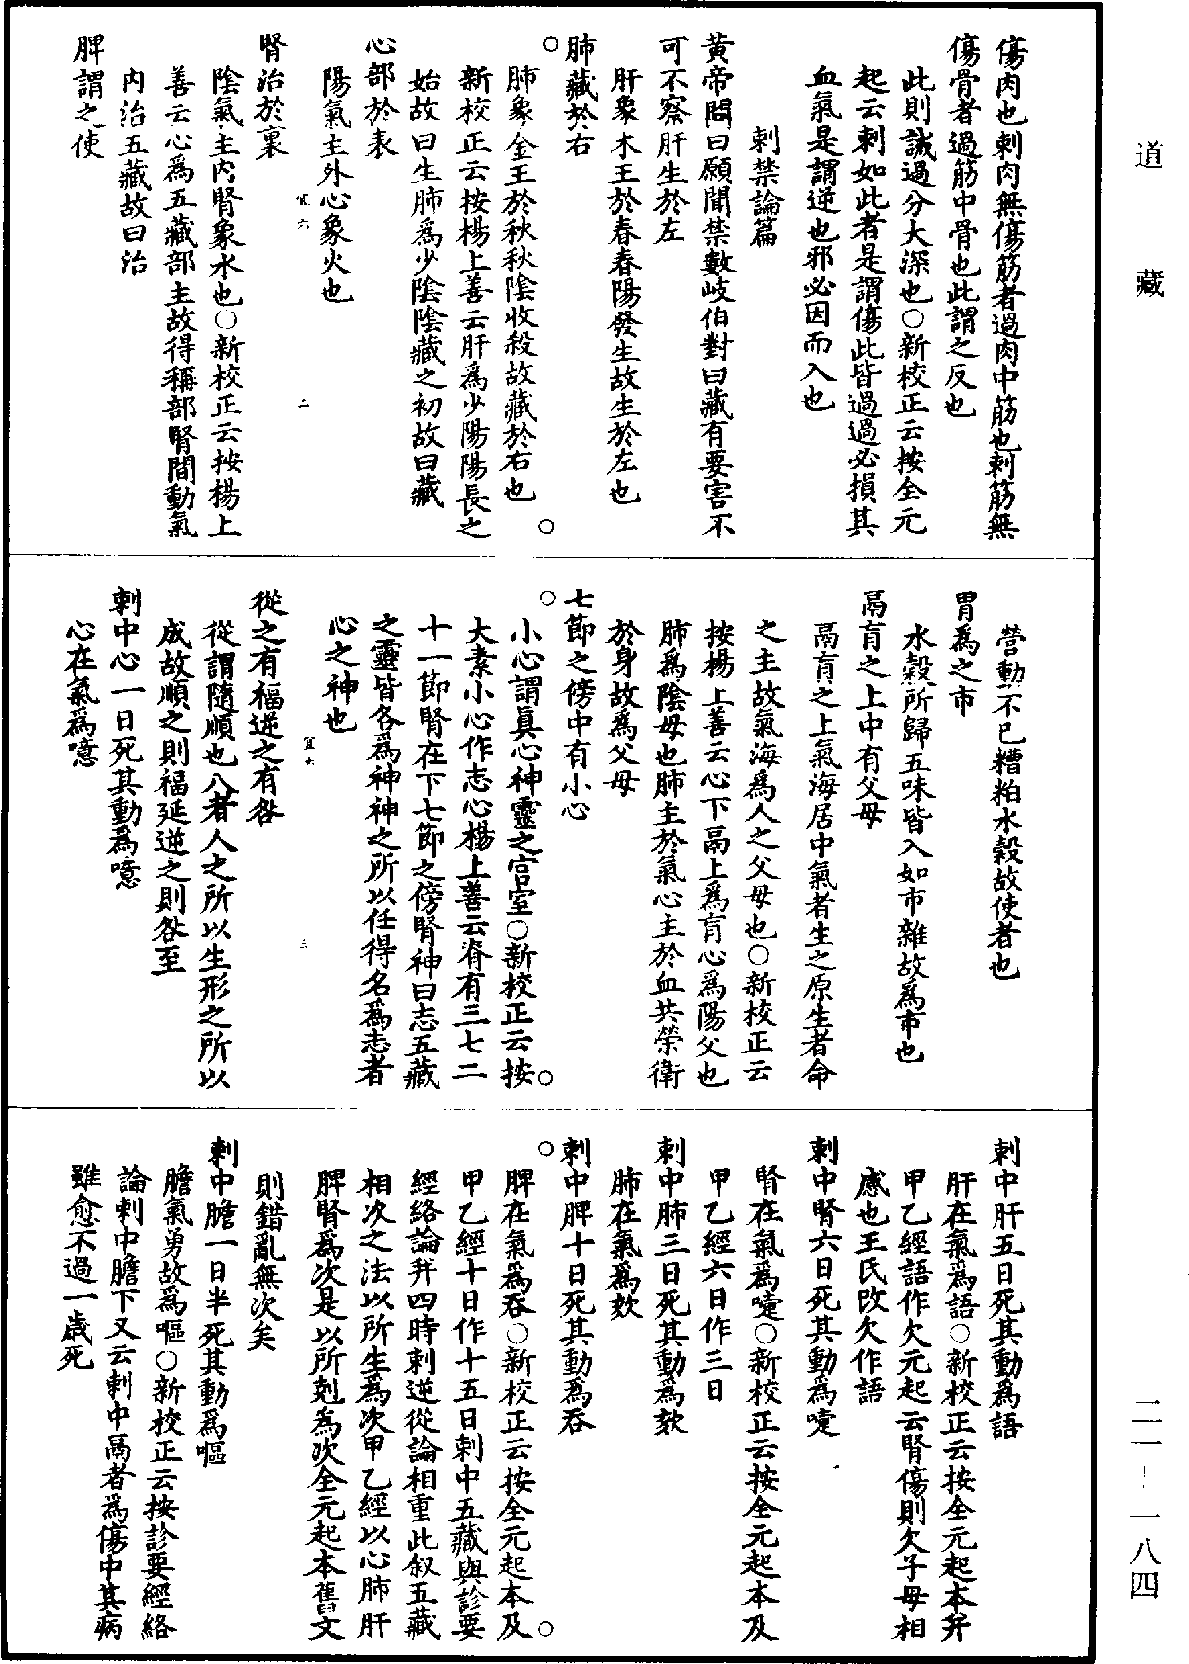 道藏
傷肉也刺肉無傷筋者過肉中筋也刺筋無
傷骨者過筋中骨也此謂之反也
此則誡過分大深也○新校正云按全元
起云刺如此者是謂傷此皆過過必損其
血氣是謂逆也邪必因而入也
刺禁論篇
黄帝問曰願聞禁數岐伯對曰藏有要害不
可不察肝生於左
肝象木王於春春陽發生故生於左也
肺藏於右
肺象金王於秋秋陰收殺故藏於右也
新校正云按楊上善云肝爲少陽陽長之
始故曰生肺爲少陰陰藏之初故曰藏
心部於表
陽氣主外心象火也
腎治於裏
陰氣主内腎象水也○新校正云按楊上
善云心爲五藏部主故得稱部腎間動氣
内治五藏故曰治
脾謂之使
營動不已糟粕水穀故使者也
胃為之市
水穀所歸五味皆入如市雜故爲市也
鬲肓之上中有父母
鬲肓之上氣海居中氣者生之原生者命
之主故氣海爲人之父母也○新校正云
按楊上善云心下鬲上爲肓心爲陽父也
肺爲陰母也肺主於氣心主於血共榮衛
於身故爲父母
七節之傍中有小心
小心謂眞心神靈之宫室○新校正云按
大素小心作志心楊上善云脊有三七二
十一節腎在下七節之傍腎神曰志五藏
之靈皆各爲神神之所以任得名爲志者
心之神也
從之有福逆之有咎
從謂隨順也八者人之所以生形之所以
成故順之則福延逆之則咎至
刺中心一日死其動爲噫
心在氣爲噫
刺中肝五日死其動爲語
肝在氣爲語○新校正云按全元起本并
甲乙經語作欠元起云腎傷則欠子母相
感也王氏改欠作語
刺中腎六日死其動爲嚏
腎在氣爲嚏○新校正云按全元起本及
甲乙經六日作三日
刺中肺三日死其動爲欬
肺在氣爲欬
刺中脾十日死其動爲吞
脾在氣爲吞○新校正云按全元起本及
甲乙經十日作十五日刺中五藏與診要
經絡論并四時刺逆從論相重此叙五藏
相次之法以所生爲次甲乙經以心肺肝
脾腎爲次是以所剋爲次全元起本舊文
則錯亂無次矣
刺中膽一日半死其動爲嘔
膽氣勇故爲嘔○新校正云按診要經絡
論刺中膽下又云刺中鬲者爲傷中其病
雖愈不過一歲死
二一—一八四